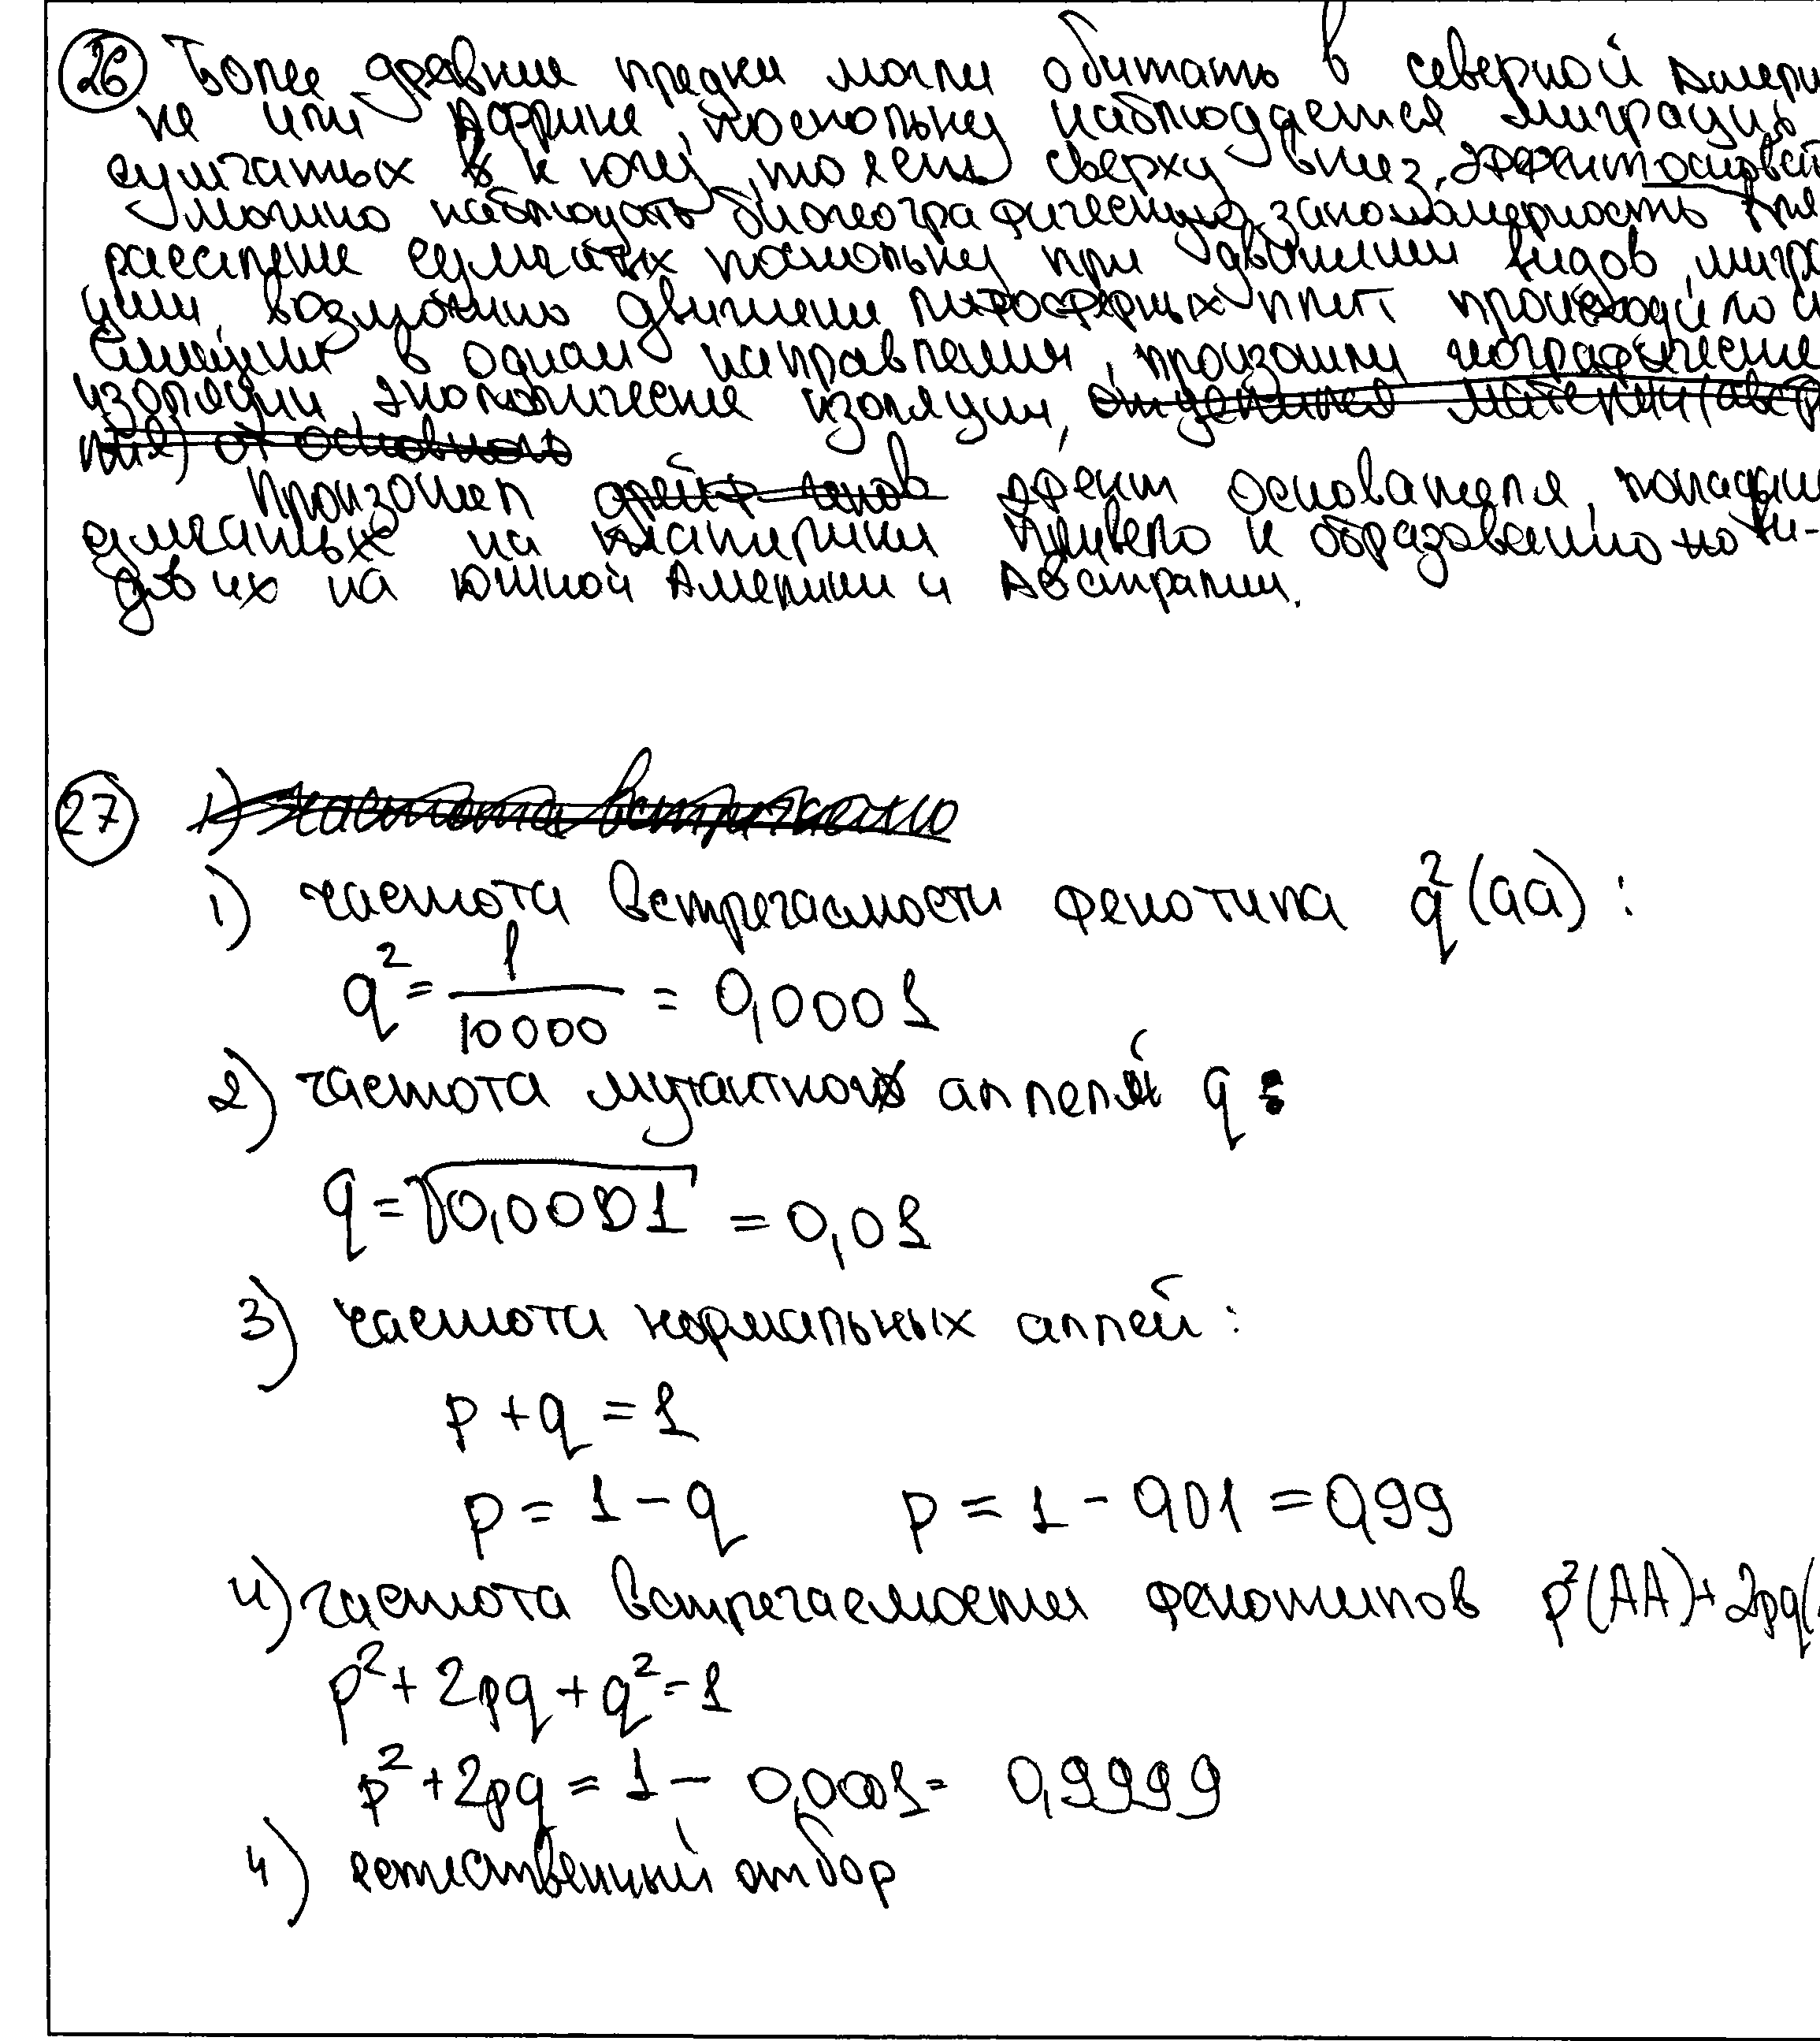 26 Более древние предки могли обитать в северной Амери
ке или Африке, поскольку наблюдается миграция
сумчатых к югу, то есть сверху вниз.
Можно наблюдать биогеографическую закономерность
расселение сумчатых поскольку при движении видов, мигра
ции, возможно движении литосферных плит происходило и
смещения в одном направлении, произошли географические
изоляции, экологические изоляции, отделился материк (австр
лия) от основного
Произошел дрейф генов эфект основателя, попадание
сумчатых на материки привело к образованию но ви-
дов их на Южной Америки и Австралии.
27 1) частота встречаемо
1) частота встречаемости фенотипа q² (aa) :
q² = 1/10000 = 0,0001
2) частота мутантного аллеля q :
q = √0,0001 = 0,01
3) частота нормальных аллей :
p + q = 1
p = 1 - q p = 1 - 0,01 = 0,99
4) частота встречаемости фенотипов p²(AA) + 2pq(
p² + 2pq + q² = 1
p² + 2pq = 1 - 0,0001 = 0,9999
4) естественный отбор